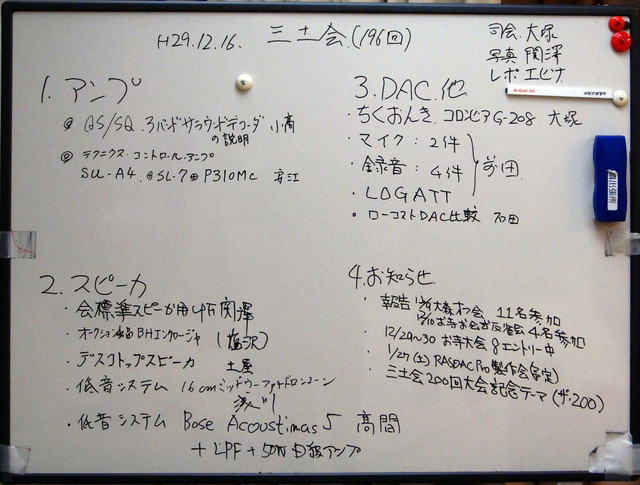 H29.12.16. 三土会.(196回)
司会.大塚
写真 関澤
レポ エビナ
1. アンプ
◎ QS/SQ 3バンドサラウンドデコーダ 小高
の説明
◎ テクニクス.コントロールアンプ
SU-A4. SL-7 P310MC 安江
3. DAC.他
・ちくおんき. コロンビアG-208 大塚
・マイク:2件
・録音:4件
・LOGATT
前田
・ローコストDAC比較 石田
2. スピーカ
・会標準スピーカ用 関澤
・オークション出品BHエンクロージャ (塩沢)
・デスクトップスピーカ 土屋
・低音システム 16cmミッドウーファ+ドロンコーン
・低音システム Bose Acoustimas 5 高間
+ LPF + 50W 自報アンプ
4. お知らせ.
・報告 大森オフ会 11名参加
12/10 お寺大会 反省会 4名参加
・12/29~30 お寺大会 8エントリー中
・1/27(土) RASDAC Pro 製作会(予定)
・三土会200回大会記念テーマ(ザ・200)